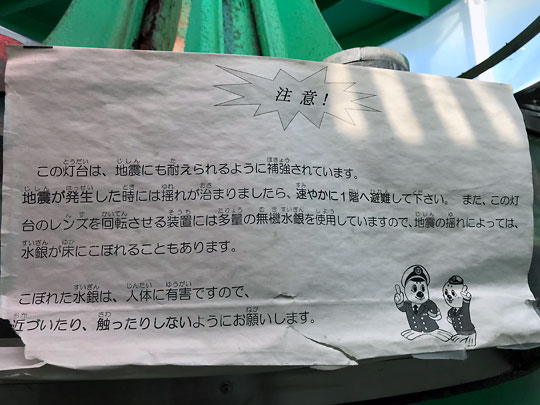 注意！
この灯台は、地震にも耐えられるように補強されています。
地震が発生した時には揺れが治まりましたら、速やかに１階へ避難して下さい。また、この灯
台のレンズを回転させる装置には多量の無機水銀を使用していますので、地震の揺れによっては、
水銀が床にこぼれることもあります。
こぼれた水銀は、人体に有害ですので、
近づいたり、触ったりしないようにお願いします。